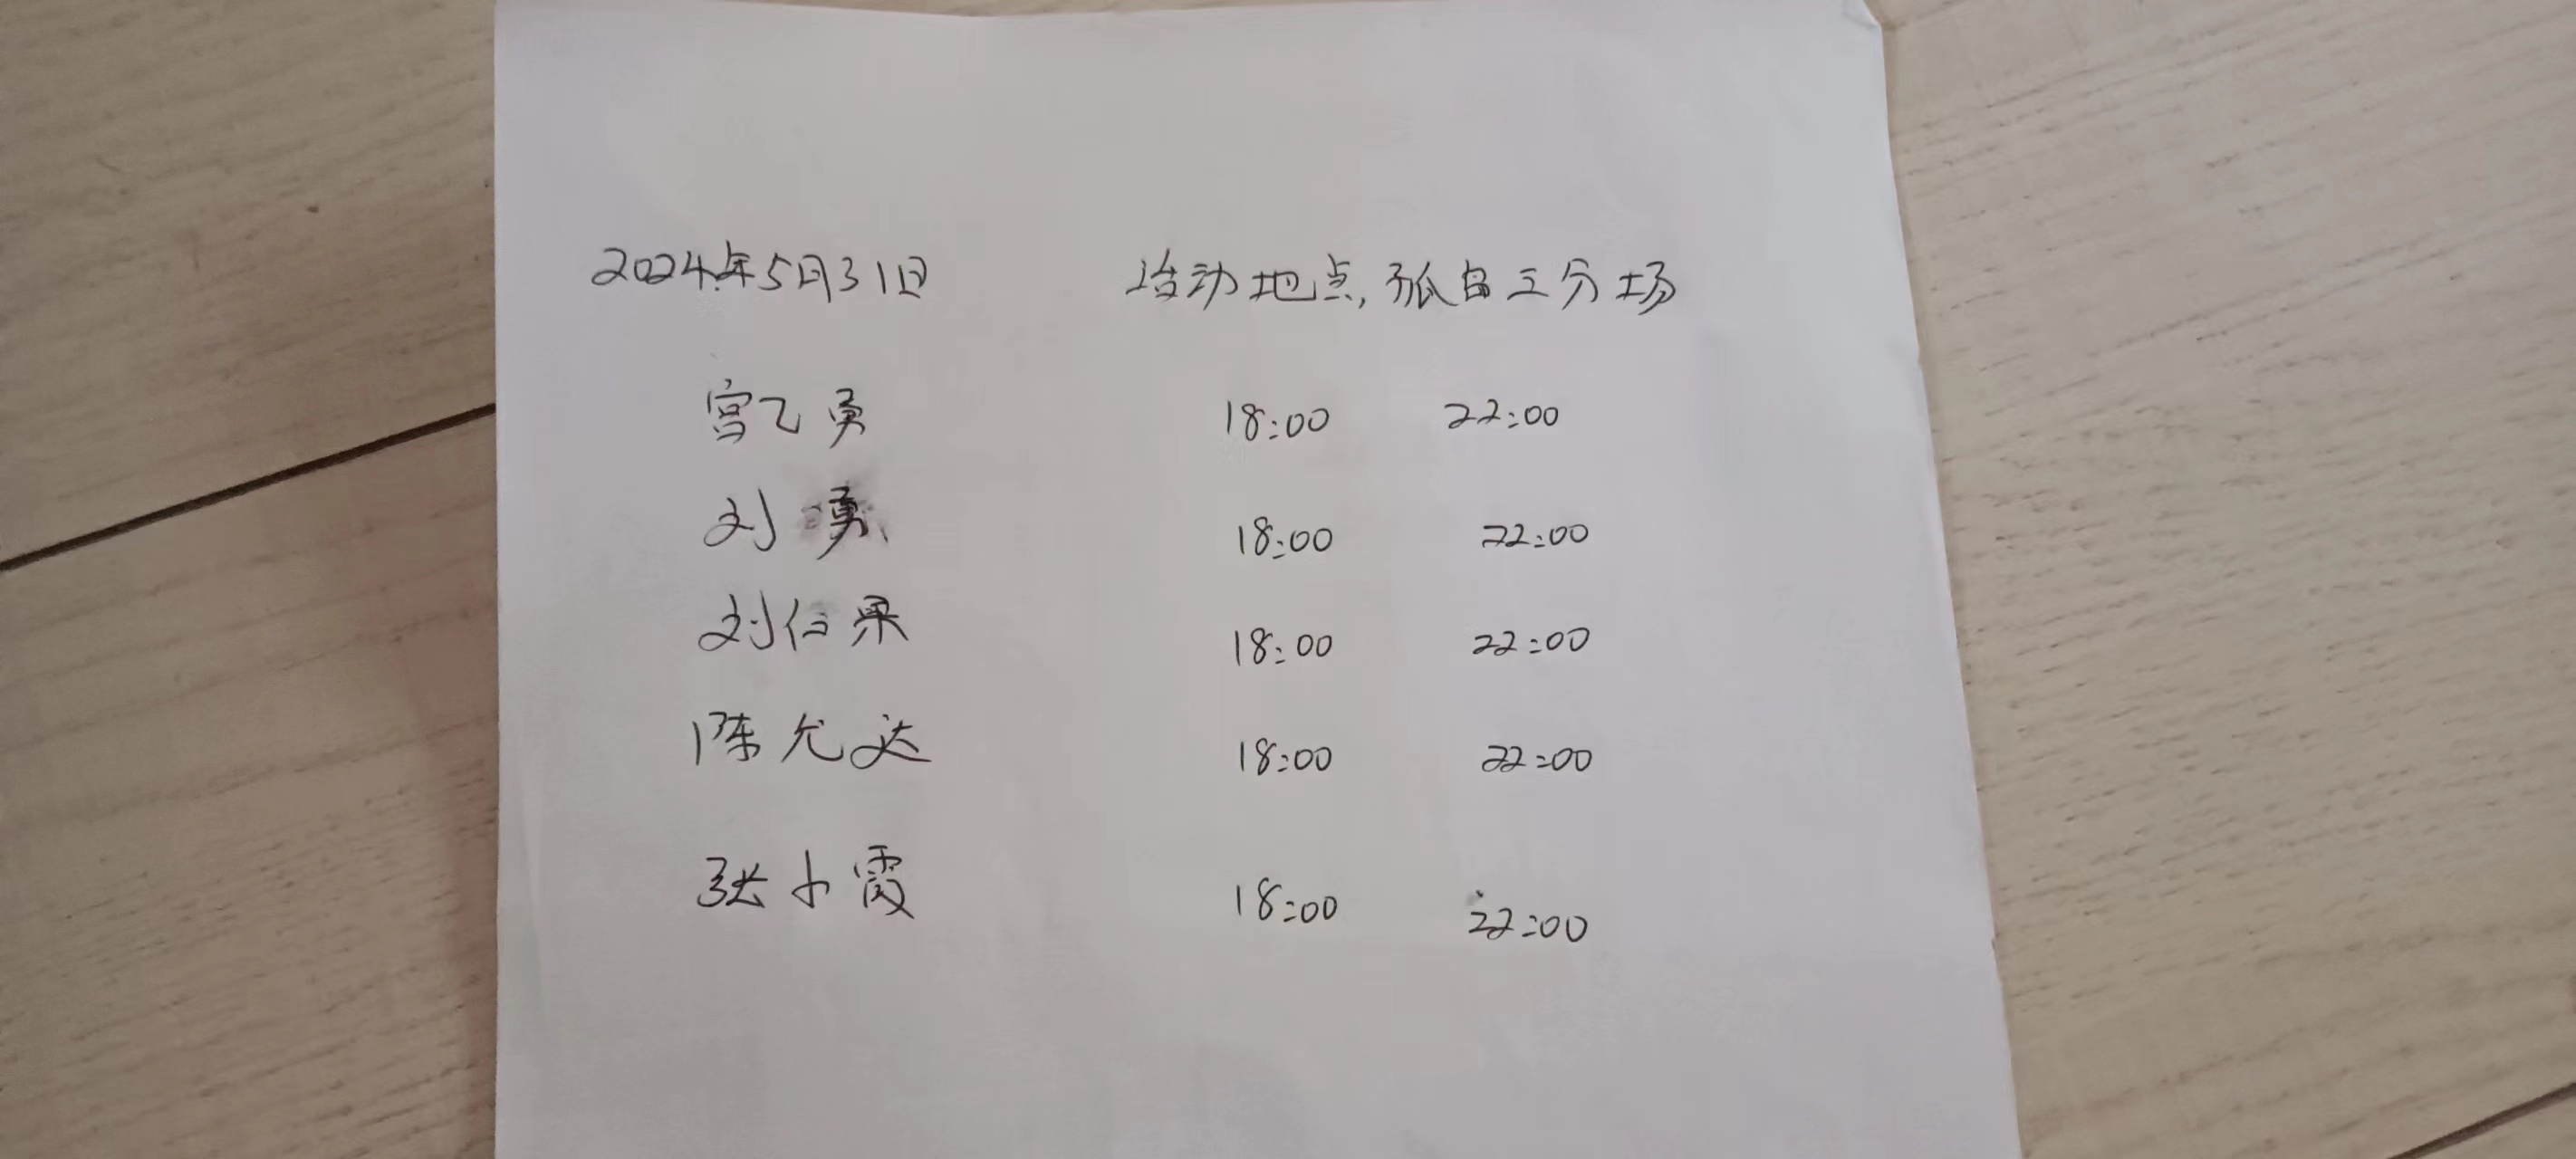 2024年5月31日 活动地点,孤白三分场
宫乙勇 18:00 22:00
刘勇 18:00 22:00
刘仁果 18:00 22:00
陈允达 18:00 22:00
张小霞 18:00 22:00